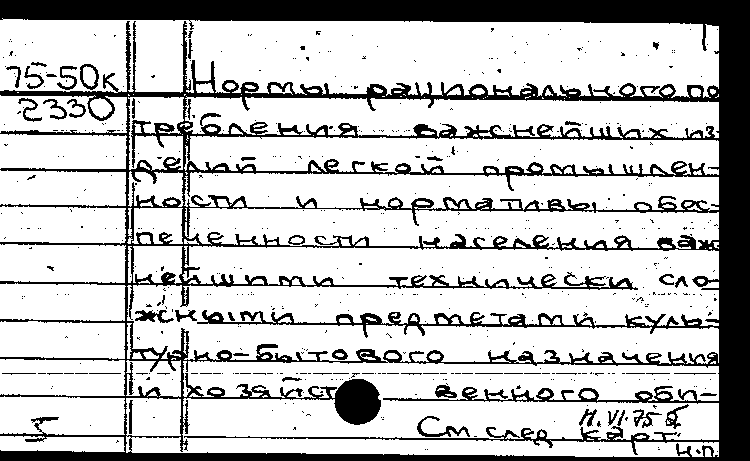 75-50к
2330
Нормы рационального по
требления важнейших из-
делий легкой промышлен-
ности и нормативы обес-
печенности населения важ
нейшими технически сло-
жными предметами куль-
турно-бытового назначения
и хозяйственного оби-
5
См. след. карт.
н.п.